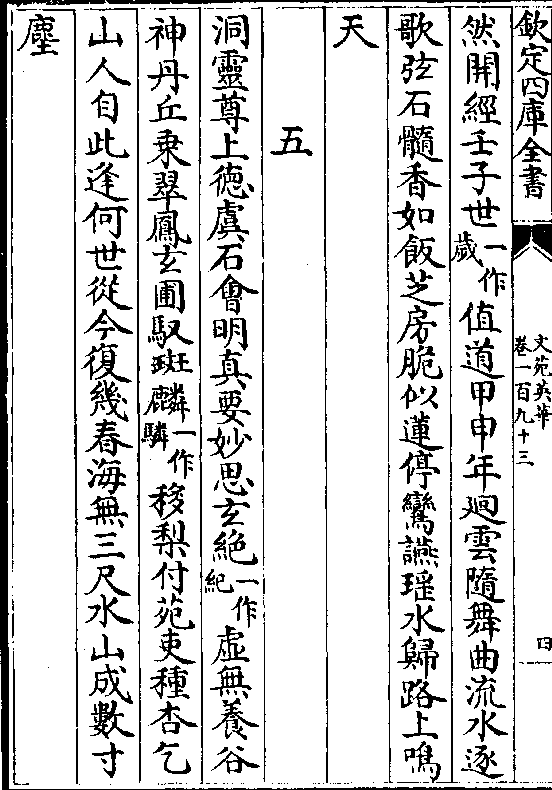 欽定四庫全書
文苑英華
卷一百九十三
四
然開經壬子世一作歲值道甲申年廻雲隨舞曲流水逐
歌弦石髓香如飯芝房脆似蓮停鸞讌瑶水歸路上鳴
天
五
洞靈尊上徳虞石會明真要妙思玄絶一作紀虚無養谷
神丹丘乗翠鳳玄圃馭斑麟一作驎移梨付苑吏種杏乞
山人自此逢何世從今復幾春海無三尺水山成數寸
塵